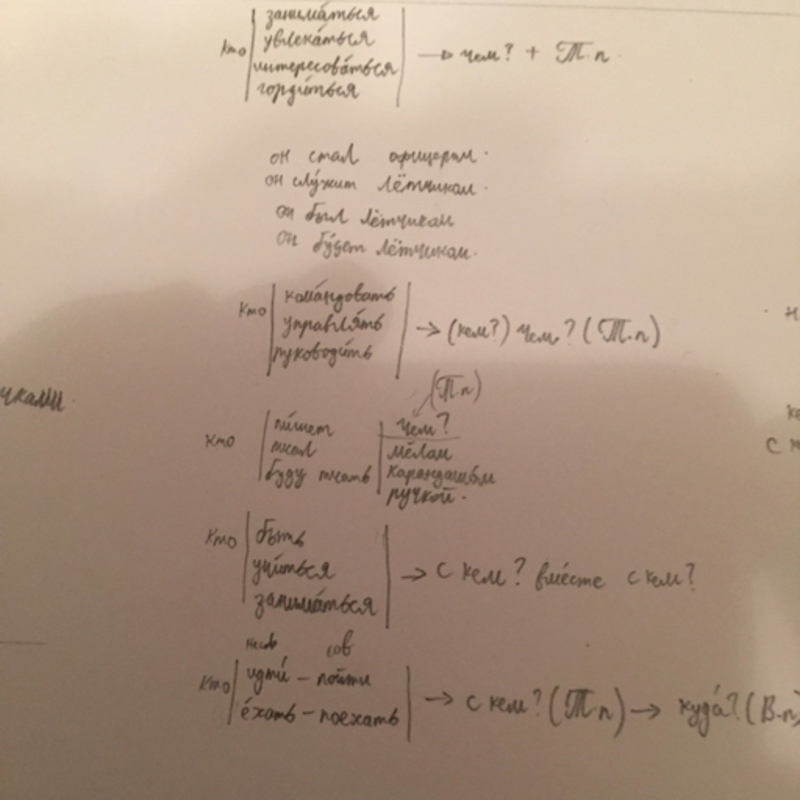 занима́ться
кто увлека́ться → чем? + Т.п.
интересова́ться
горди́ться
он стал офицером.
он слу́жит лётчиком.
он был лётчикам
он бу́дет лётчиком.
кома́ндовать
кто управля́ть → (кем?) чем? (Т.п)
руководи́ть
(Т.п)
чками.
пи́шет чем?
кто писал ме́лам
буду писать карандашом
ручкой.
быть
кто учи́ться → с кем? вме́сте с кем?
занима́ться
несов сов
кто идти́ – пойти → с кем? (Т.п) → куда́? (В.п)
е́хать – поехать